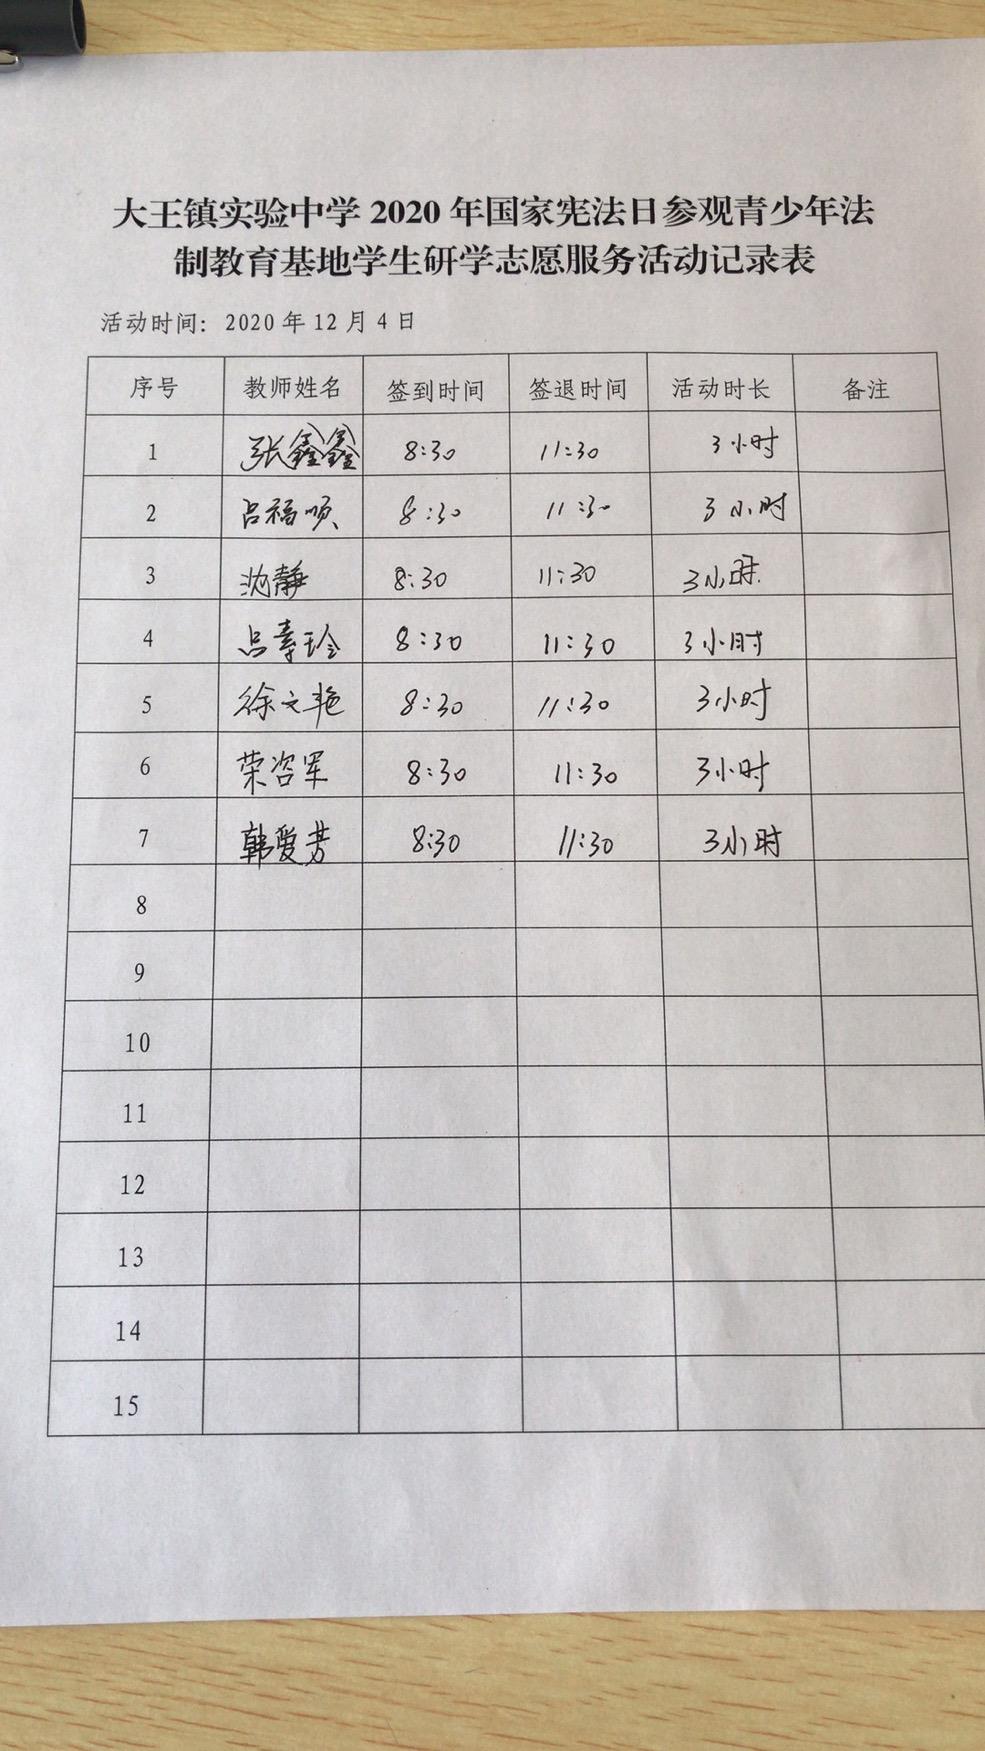 大王镇实验中学2020年国家宪法日参观青少年法
制教育基地学生研学志愿服务活动记录表
活动时间：2020年12月4日
序号 教师姓名 签到时间 签退时间 活动时长 备注
1 张鑫鑫 8:30 11:30 3小时
2 吕福顺 8:30 11:30 3小时
3 沈静 8:30 11:30 3小时
4 吕寿玲 8:30 11:30 3小时
5 徐文艳 8:30 11:30 3小时
6 荣咨军 8:30 11:30 3小时
7 韩爱芳 8:30 11:30 3小时
8
9
10
11
12
13
14
15